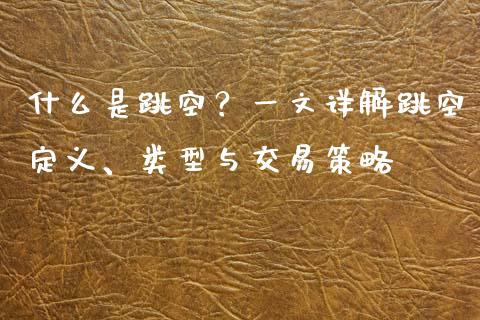 什么是跳空？一文详解跳空
定义、类型与交易策略